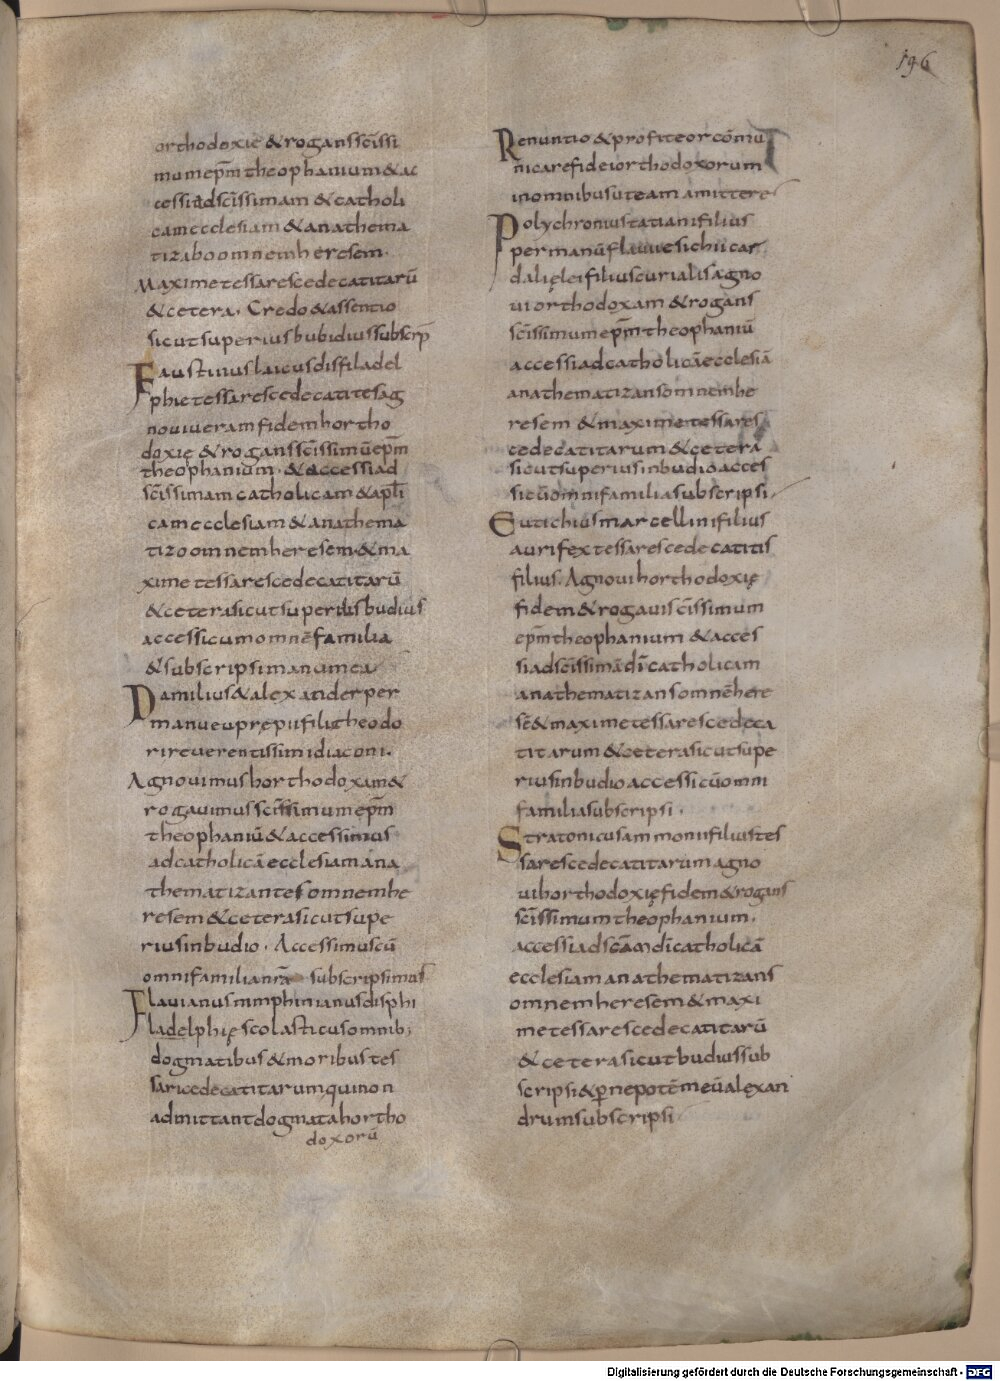 196
orthodoxie & rogans scīssi
mum ep̄m theophanium & ac
cessi ad scīssimam & catholi
cam ecclesiam & anathema
tizabo omnem heresem.
Maxime tessarescedecatitarū
& cetera. Credo & assentio
sicut superius bubidius subscrip̄
Faustinus laicus disfiladel
phie tessarescedecatites ag
noui ueram fidem hortho
doxię & rogans scīssimū ep̄m
theophanium. & accessi ad
scīssimam catholicam & apl̄i
cam ecclesiam & anathema
tizo omnem heresem. & ma
xime tessarescedecatitarū
& cetera sicut superius budius
accessi cum omnē familia
& subscripsi manu mea
Damilius & alexander per
manu eu prępii filii theodo
ri reuerentissimi diaconi.
Agnouimus horthodoxiam &
rogauimus scīssimum ep̄m
theophaniū & accessimus
ad catholicā ecclesiam ana
thematizantes omnem he
resem & cetera sicut supe
rius in budio. Accessimus cū
omni familia nr̄a subscripsimus
Flauianus nimphinianus disphi
ladelphię scolasticus omnib;
dogmatibus & moribus tes
saricedecatitarum qui non
admittant dogmata hortho
doxorū
Renuntio & profiteor cōmu
nicare fidei orthodoxorum
in omnibus ut eam amittere
Polychronius tatiani filius
per manū flauii esichii car
dalię lei filius curialis agno
ui orthodoxam & rogans
scīssimum ep̄m theophaniū
accessi ad catholicā ecclesiā
anathematizans omnem he
resem & maxime tessares
cedecatitarum & cetera
sicut superius in budio acces
si cū omni familia subscripsi.
Eutichius marcellini filius
aurifex tessarescedecatitis
filius. Agnoui horthodoxię
fidem & rogaui scīssimum
ep̄m theophanium & acces
si ad scīssimā dī catholicam
anathematizans omnē here
sē & maxime tessarescedeca
titarum & cetera sicut supe
rius in budio accessi cū omni
familia subscripsi.
Stratonicus ammonii filius tes
sarescedecatitarum agno
ui horthodoxię fidem & rogans
scīssimum theophanium.
accessi ad scām dī catholicā
ecclesiam anathematizans
omnem heresem & maxi
me tessarescedecatitarū
& cetera sicut budius sub
scripsi & p̄ nepotē meū alexan
drum subscripsi
Digitalisierung gefördert durch die Deutsche Forschungsgemeinschaft - DFG